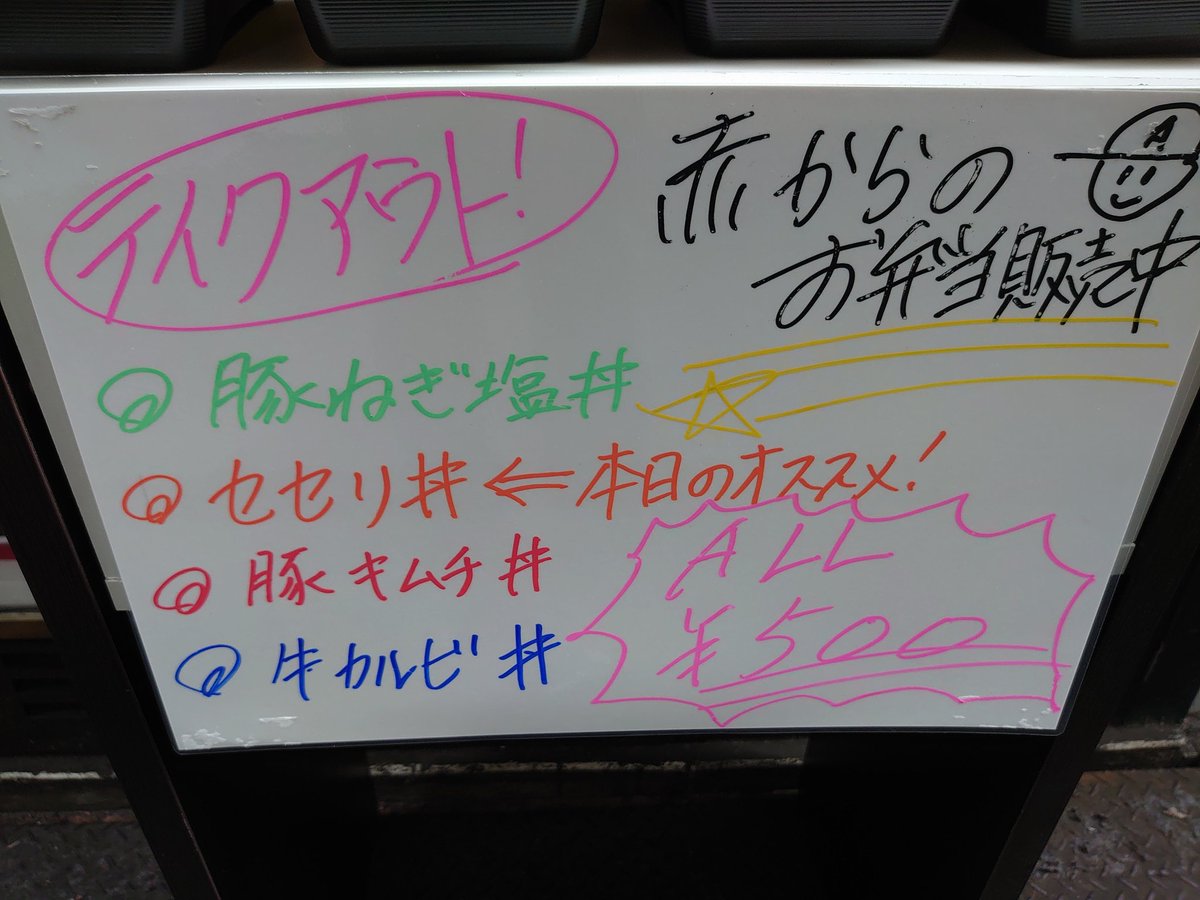 テイクアウト!
赤からの
お弁当販売中
豚ねぎ塩丼
セセリ丼 ⇐ 本日のオススメ!
豚キムチ丼
牛カルビ丼
A
ALL
¥500